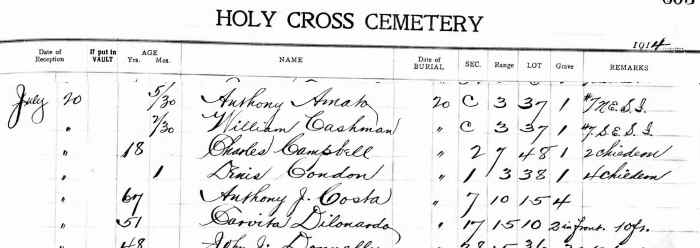 HOLY CROSS CEMETERY
1914
Date of Reception If put in VAULT AGE Yrs. Mos. NAME Date of BURIAL SEC. Range LOT Grave REMARKS
July 20 5/30 Anthony Amato 20 C 3 37 1 #7 N.E.S.I.
" 2/30 William Cashman " C 3 37 1 #7 S.E.S.I.
" 18 Charles Campbell " 2 7 48 1 2 chiedem
" 1 Denis Condon " 1 3 38 1 4 chiedem
" 67 Anthony J. Costa " 7 10 15 4
" 51 Carvita Dilonardo " 17 15 10 2 in front. 10fs.
" 48 John J. Donnelly